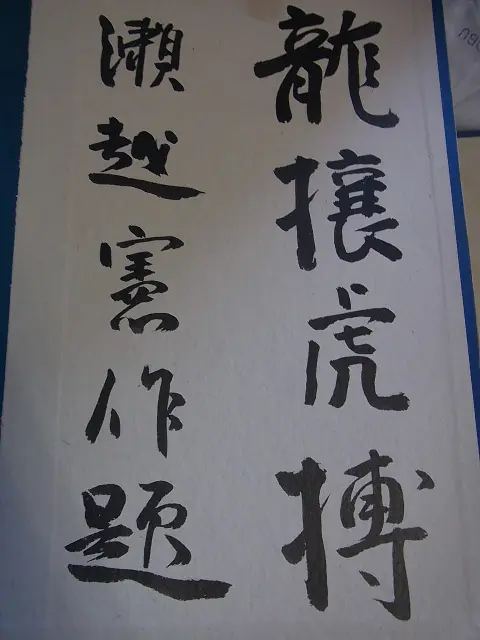 龍攘虎搏
瀬越憲作題